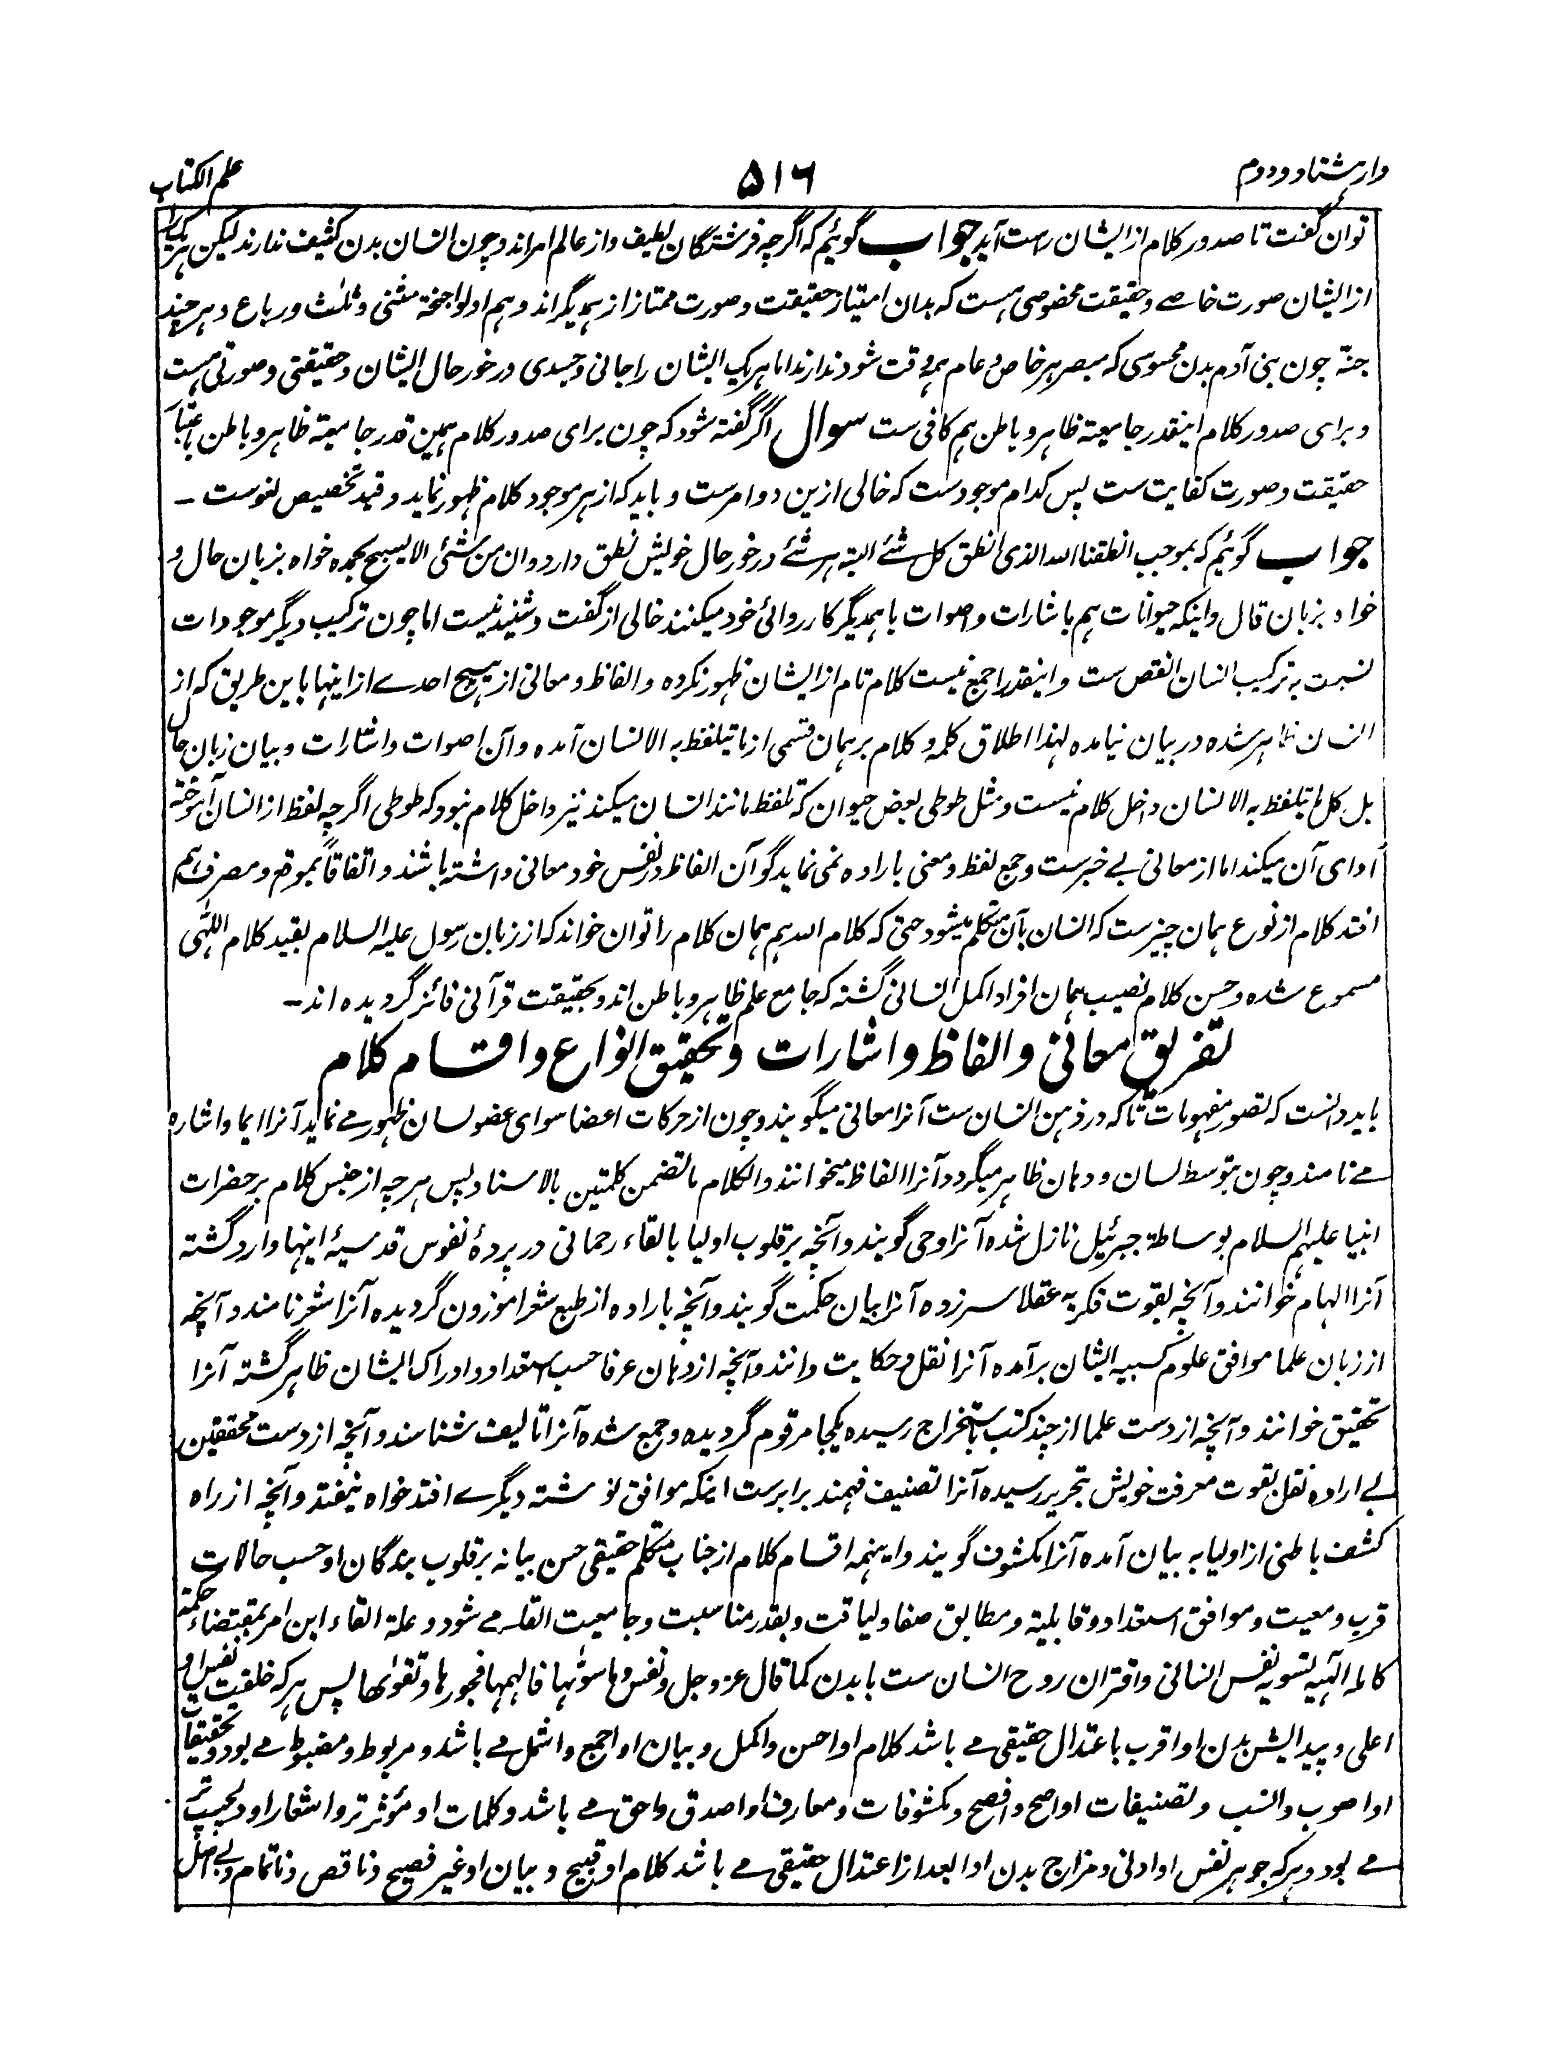 وارد هشتاد و دوم
۵۱۶
علم الکتاب
توان گفت تا صدور کلام از ایشان راست آید جواب گوئیم که اگرچه فرشتگان لطیف و از عالم امر اند و چون انسان بدن کثیف ندارند لیکن هر یک را
از ایشان صورت خاصے و حقیقت مخصوصی هست که بدان امتیاز حقیقت و صورت ممتاز از همدیگر اند و هم اولو اجنحة مثنی و ثلث و رباع و هر چند
جثهٔ چون بنی آدم بدن محسوسی که مبصر هر خاص و عام همه وقت شود ندارند اما هر یک ایشان را جانی و جسدی در خور حال ایشان و حقیقتی و صورتی هست
و برای صدور کلام اینقدر جامعیة ظاهر و باطن هم کافی ست سوال اگر گفته شود که چون برای صدور کلام همین قدر جامعیة ظاهر و باطن باعتبار
حقیقت و صورت کفایت ست پس کدام موجودست که خالی ازین دو امرست و باید که از هر موجود کلام ظهور نماید و قید تخصیص لغوست ۔
جواب گوئیم که بموجب انطقنا الله الذی انطق کل شئے البته هر شئے در خور حال خویش نطق دارد و ان من شئی الا یسبح بحمده خواه بزبان حال و
خواه بزبان قال و اینکه حیوانات هم باشارات و اصوات باهمدیگر کارروائی خود میکنند خالی از گفت و شنید نیست اما چون ترکیب دیگر موجودات
نسبت به ترکیب انسان انقص ست و اینقدر اجمع نیست کلام تام از ایشان ظهور نکرده و الفاظ و معانی از هیچ احدے از اینها باین طریق که از
انسان ظاهر شده در بیان نیامده لهذا اطلاق کلمه و کلام بر همان قسمی از ما یتلفظ به الانسان آمده و آن اصوات و اشارات و بیان زبان حال
بل کل ما یتلفظ به الانسان داخل کلام نیست و مثل طوطی بعض حیوان که تلفظ مانند انسان میکند نیز داخل کلام نبود که طوطی اگرچه لفظ از انسان آموخته
ادای آن میکند اما از معانی بے خبرست و جمع لفظ و معنی باراده نمی نماید گو آن الفاظ در نفس خود معانی داشته باشند و اتفاقاً بموقع و مصرف هم
افتد کلام از نوع همان چیزست که انسان بآن متکلم میشود حتی که کلام الله هم همان کلام را توان خواند که از زبان رسول علیه السلام بقید کلام اللهی
مسموع شده و حسن کلام نصیب همان افراد اکمل انسانی گشته که جامع علم ظاهر و باطن اند و بحقیقت قرآنی فائز گردیده اند ۔
تفریق معانی و الفاظ و اشارات و تحقیق انواع و اقسام کلام
باید دانست که تصور مفهومات تا که در ذهن انسان ست آنرا معانی میگویند و چون از حرکات اعضا سوای عضو لسان ظهور مے نماید آنرا ایما و اشاره
مے نامند و چون بتوسط لسان و دهان ظاهر میگردد آنرا الفاظ میخوانند و الکلام ما تضمن کلمتین بالاسناد پس هرچه از جنس کلام بر حضرات
انبیا علیهم السلام بوساطة جبرئیل نازل شده آنرا وحی گویند و آنچه بر قلوب اولیا بالقاء رحمانی در پردهٔ نفوس قدسیهٔ اینها وارد گشته
آنرا الهام خوانند و آنچه بقوت فکریه عقلا سرزده آنرا بیان حکمت گویند و آنچه باراده از طبع شعرا موزون گردیده آنرا شعر نامند و آنچه
از زبان علما موافق علوم کسبیه ایشان برآمده آنرا نقل و حکایت دانند و آنچه از دهان عرفا حسب استعداد و ادراک ایشان ظاهر گشته آنرا
تحقیق خوانند و آنچه از دست علما از چند کتب باستخراج رسیده یکجا مرقوم گردیده و جمع شده آنرا تالیف شناسند و آنچه از دست محققین
بے اراده نقل بقوت معرفت خویش بتحریر رسیده آنرا تصنیف فهمند برابرست اینکه موافق نوشته دیگرے افتد خواه نیفتد و آنچه از راه
کشف باطنی از اولیا به بیان آمده آنرا مکشوف گویند و اینهمه اقسام کلام از جناب متکلم حقیقی حسن بیانه بر قلوب بندگان او حسب حالات
قرب و معیت و موافق استعداد و قابلیة و مطابق صفا و لیاقت و بقدر مناسبت و جامعیت القا مے شود و علة القاء این امر بمقتضاء حکمة
کامله الٓهیه تسویه نفس انسانی و اقتران روح انسان ست با بدن کما قال عز و جل و نفس و ما سوّٰها فالهمها فجورها و تقوٰها پس هر که خلقیت نفس او
اعلی و پیدایش بدن او اقرب باعتدال حقیقی مے باشد کلام او احسن و اکمل و بیان او اجمع و اشمل مے باشد و مربوط و مضبوط مے بود و تحقیقات
او اصوب و انسب و تصنیفات او اصح و افصح و مکشوفات و معارف او اصدق و احق مے باشد و کلمات او مؤثر تر و اشعار او دلچسپ تر
مے بود و هر که جوهر نفس او ادنی و مزاج بدن او ابعد از اعتدال حقیقی مے باشد کلام او قبیح و بیان او غیر فصیح و ناقص و ناتمام و بے اصل